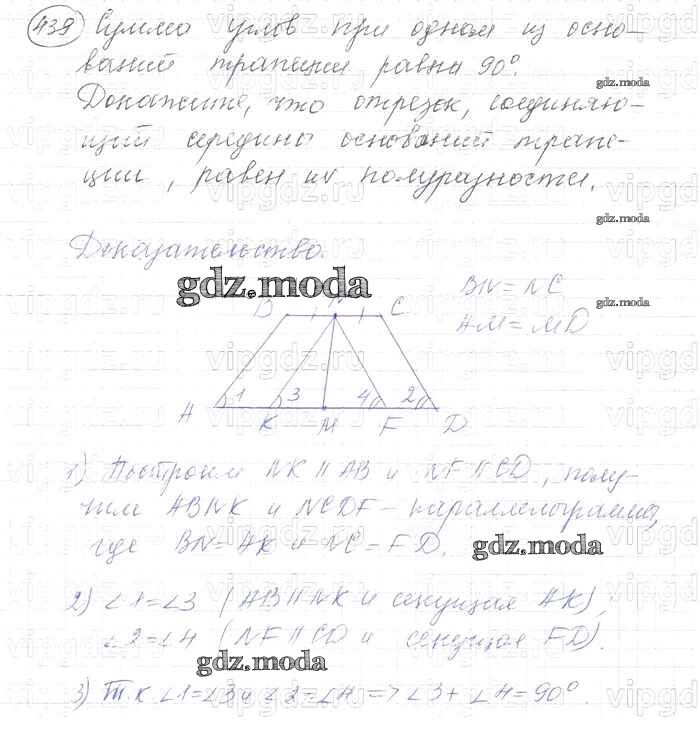 439 Сумма углов при одном из осно-
ваний трапеции равна 90°.
gdz.moda
Докажите, что отрезок, соединяю-
щий середины оснований трапе-
ции, равен их полуразности.
gdz.moda
Доказательство.
gdz.moda
BN = NC
gdz.moda
AM = MD
B N C
1 3 4 2
A K M F D
1) Построим NK || AB и NF || CD, полу-
чим ABNK и NCDF - параллелограммы,
где BN = AK и NC = FD.
gdz.moda
2) ∠1=∠3 (AB || NK и секущая AK),
∠2=∠4 (NF || CD и секущая FD).
gdz.moda
3) Т.к ∠1=∠3 и ∠2=∠4 => ∠3+∠4=90°.
vipgdz.ru